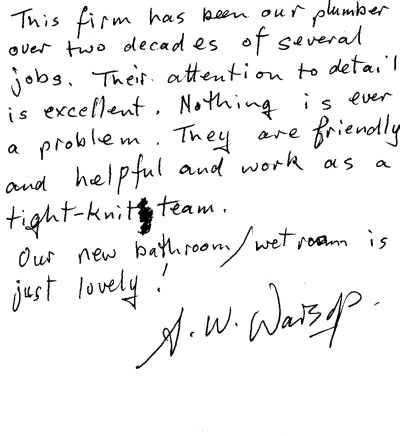 This firm has been our plumber
over two decades of several
jobs. Their attention to detail
is excellent. Nothing is ever
a problem. They are friendly
and helpful and work as a
tight-knit team.
Our new bathroom/wetroom is
just lovely!
A. W.